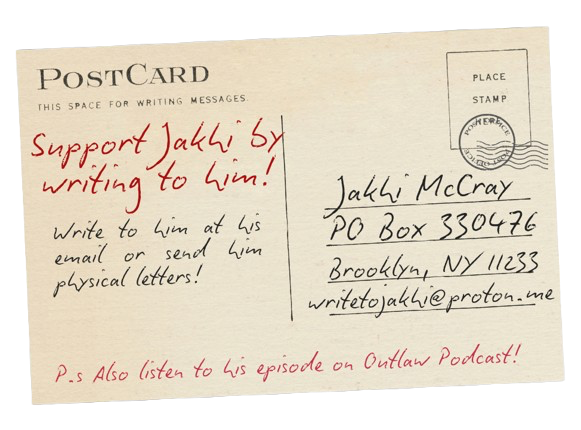 POSTCARD
THIS SPACE FOR WRITING MESSAGES
PLACE
STAMP
HERE
POST OFFICE
Support Jakhi by
writing to him!
Write to him at his
email or send him
physical letters!
Jakhi McCray
PO Box 330476
Brooklyn, NY 11233
writetojakhi@proton.me
P.s Also listen to his episode on Outlaw Podcast!